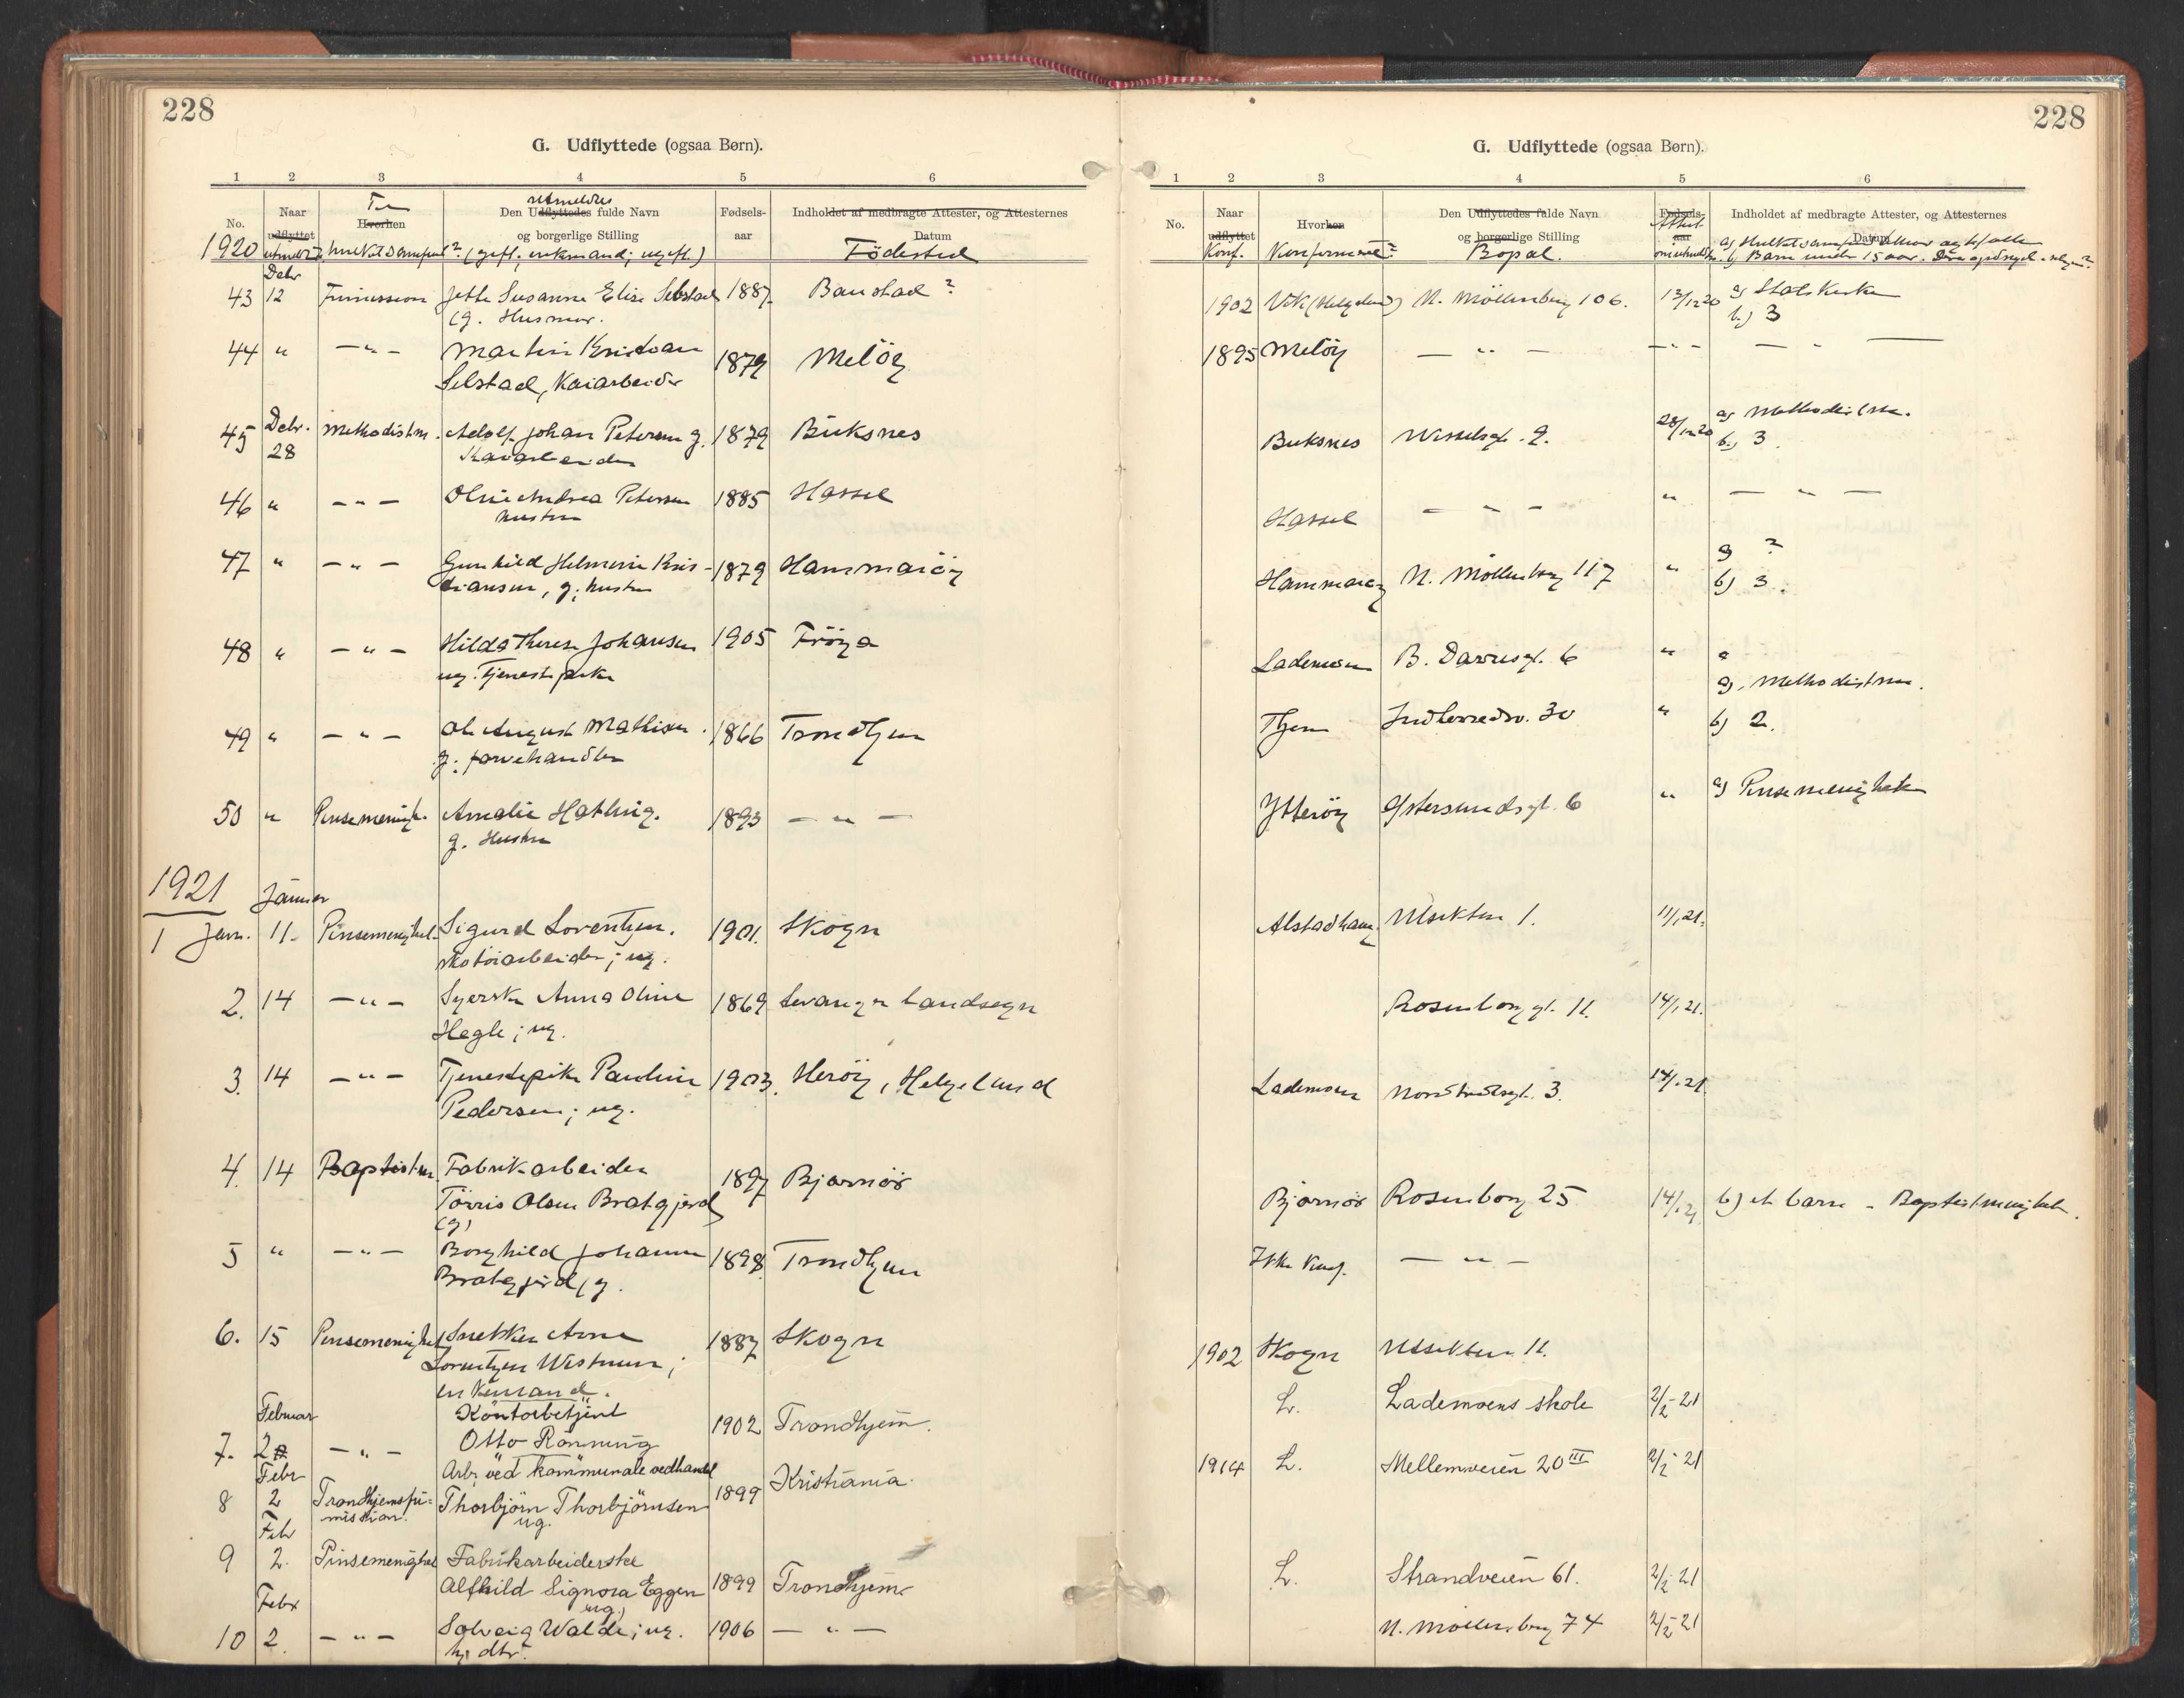 228
G. Udflyttede (ogsaa Børn).
1 2 3 4 5 6
No. Naar udflyttet Hvorhen Den Udflyttedes fulde Navn og borgerlige Stilling Fødsels-aar Indholdet af medbragte Attester, og Attesternes Datum
utmeldtes
1920 (gift; enkemand; ugift.) Födested
Debr
43 12 Frimission Jette Susanne Elise Selstad 1887 Baustad?
(g. Husmor.
44 " — " — Martin Kristian 1879 Melöy
Selstad, Kaiarbeider
45 Debr. 28 Methodistm. Adolf Johan Petersen g. 1879 Buksnes
Kaiarbeider
46 " — " — Oline Andrea Petersen 1885 Hassel
hustru
47 " — " — Gunhild Helmine Kris- 1879 Hammaröy
tiansen, g; hustru
48 " — " — Hilda Therese Johansen 1905 Fröya
ug. Tjenestepike
49 " — " — Ole August Mathisen 1866 Trondhjem
g; farvehandler
50 " Pinsemenigh. Amalie Hatling. 1893 — " —
g. Hustru
1921 Januar
1 Jan. 11. Pinsemenighet Sigurd Lorentzen. 1901. Skogn
skotöiarbeider; ug.
2. 14 — " — Syerske Anna Oline 1869 Levanger landsogn
Hegle; ug.
3. 14 — " — Tjenestepike Pauline 1903. Heröy, Helgeland
Pedersen; ug.
4. 14 Baptistm. Fabrikarbeider 1897 Bjørnör
Törris Olsen Bratgjerd
(g)
5 " — " — Borghild Johanne 1898. Trondhjem
Bratgjerd, g.
6. 15 Pinsemenighet Snekker Arne 1887 Skogn
Lorentzen Westrum;
enkemand.
Februar Kontorbetjent 1902 Trondhjem.
7. 2 — " — Otto Rönning
Febr Arb. ved kommunale vedhandel
8 2 Trondhjems fri- Thorbjörn Thorbjörnsen 1899 Kristiania.
mission. ug.
Febr
9 2. Pinsemenighet Fabrikarbeiderske
Alfhild Signora Eggen 1899 Trondhjem
Febr ug;
10 2. — " — Solveig Walde; ug. 1906 — " —
hj. dtr.
228
G. Udflyttede (ogsaa Børn).
1 2 3 4 5 6
No. Naar udflyttet Hvorhen Den Udflyttedes fulde Navn og borgerlige Stilling Fødsels-aar Indholdet af medbragte Attester, og Attesternes Datum
Konf. Konfirmert? Bopæl. b) Barn under 15 aar.
1902 Vik (Helgeland) N. Möllenberg 106. 13/12 20 a) Statskirke
b) 3
1895 Melöy — " — — " — — " —
Buksnes Wesselsgt. 9. 28/12 20 a) Methodistm.
b) 3.
Hassel — " — " — " —
Hammaröy N. Möllenberg 117 " a) ?
b) 3.
Lademoen 6 " "
a) Methodistm.
Thjem Indherredsv. 30 " b) 2.
Ytteröy Østersundsgt. 6 " a) Pinsemenighet
Alstadhaug Utsikten 1. 11/1 21.
Rosenborg gt. 11. 14/1 21.
Lademoen 3. 14/1 21.
Bjørnör Rosenborg 25 14/1 21 b) et barn - Baptistmenighet.
Ikke konf. — " —
1902 Skogn Utsikten 11.
L. Lademoens skole 2/2-21
1914 L. Mellemveien 20 III 2/2-21
L. Strandveien 61. 2/2-21
N. Möllenberg 74 2/2-21